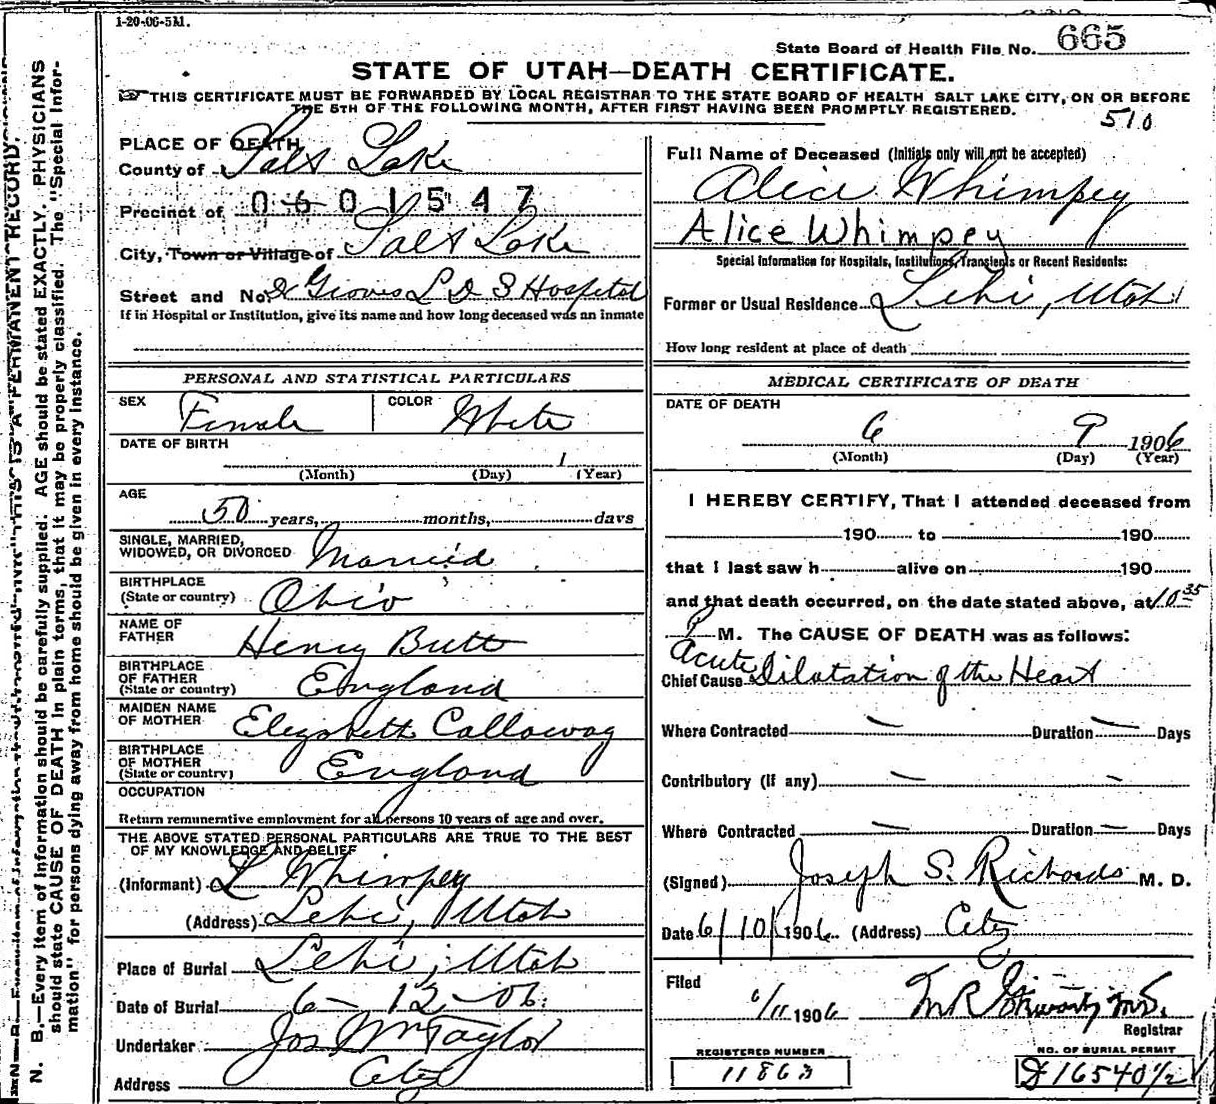 1-20-06-5M.
State Board of Health File No. 665
STATE OF UTAH—DEATH CERTIFICATE.
THIS CERTIFICATE MUST BE FORWARDED BY LOCAL REGISTRAR TO THE STATE BOARD OF HEALTH SALT LAKE CITY, ON OR BEFORE
THE 5TH OF THE FOLLOWING MONTH, AFTER FIRST HAVING BEEN PROMPTLY REGISTERED.
510
PLACE OF DEATH
County of Salt Lake
Precinct of 0601547
City, Town or Village of Salt Lake
Street and No. Groves L D S Hospital
If in Hospital or Institution, give its name and how long deceased was an inmate
PERSONAL AND STATISTICAL PARTICULARS
SEX Female COLOR White
DATE OF BIRTH
1
(Month) (Day) (Year)
AGE
50 years, months, days
SINGLE, MARRIED,
WIDOWED, OR DIVORCED Married
BIRTHPLACE
(State or country) Ohio
NAME OF
FATHER Henry Butt
BIRTHPLACE
OF FATHER
(State or country) England
MAIDEN NAME
OF MOTHER Elizabeth Calloway
BIRTHPLACE
OF MOTHER
(State or country) England
OCCUPATION
Return remunerative employment for all persons 10 years of age and over.
THE ABOVE STATED PERSONAL PARTICULARS ARE TRUE TO THE BEST
OF MY KNOWLEDGE AND BELIEF
(Informant) L Whimpey
(Address) Lehi, Utah
Place of Burial Lehi, Utah
Date of Burial 6-12-06.
Undertaker Jos Wm Taylor
Address City
Full Name of Deceased (Initials only will not be accepted)
Alice Whimpey
Alice Whimpey
Special Information for Hospitals, Institutions, Transients or Recent Residents:
Former or Usual Residence Lehi, Utah
How long resident at place of death
MEDICAL CERTIFICATE OF DEATH
DATE OF DEATH
6 9 1906
(Month) (Day) (Year)
I HEREBY CERTIFY, That I attended deceased from
190 to 190
that I last saw h alive on 190
and that death occurred, on the date stated above, at 10 35
P M. The CAUSE OF DEATH was as follows:
Chief Cause Acute Dilatation of the Heart
Where Contracted — Duration — Days
Contributory (if any) — —
Where Contracted — Duration — Days
(Signed) Joseph S. Richards M. D.
Date 6/10/1906 (Address) City
Filed
6/11 1906
Registrar
REGISTERED NUMBER
11863
NO. OF BURIAL PERMIT
D 16540 1/2
N. B.—Every item of information should be carefully supplied. AGE should be stated EXACTLY. PHYSICIANS
should state CAUSE OF DEATH in plain terms, that it may be properly classified. The "Special Infor-
mation" for persons dying away from home should be given in every instance.